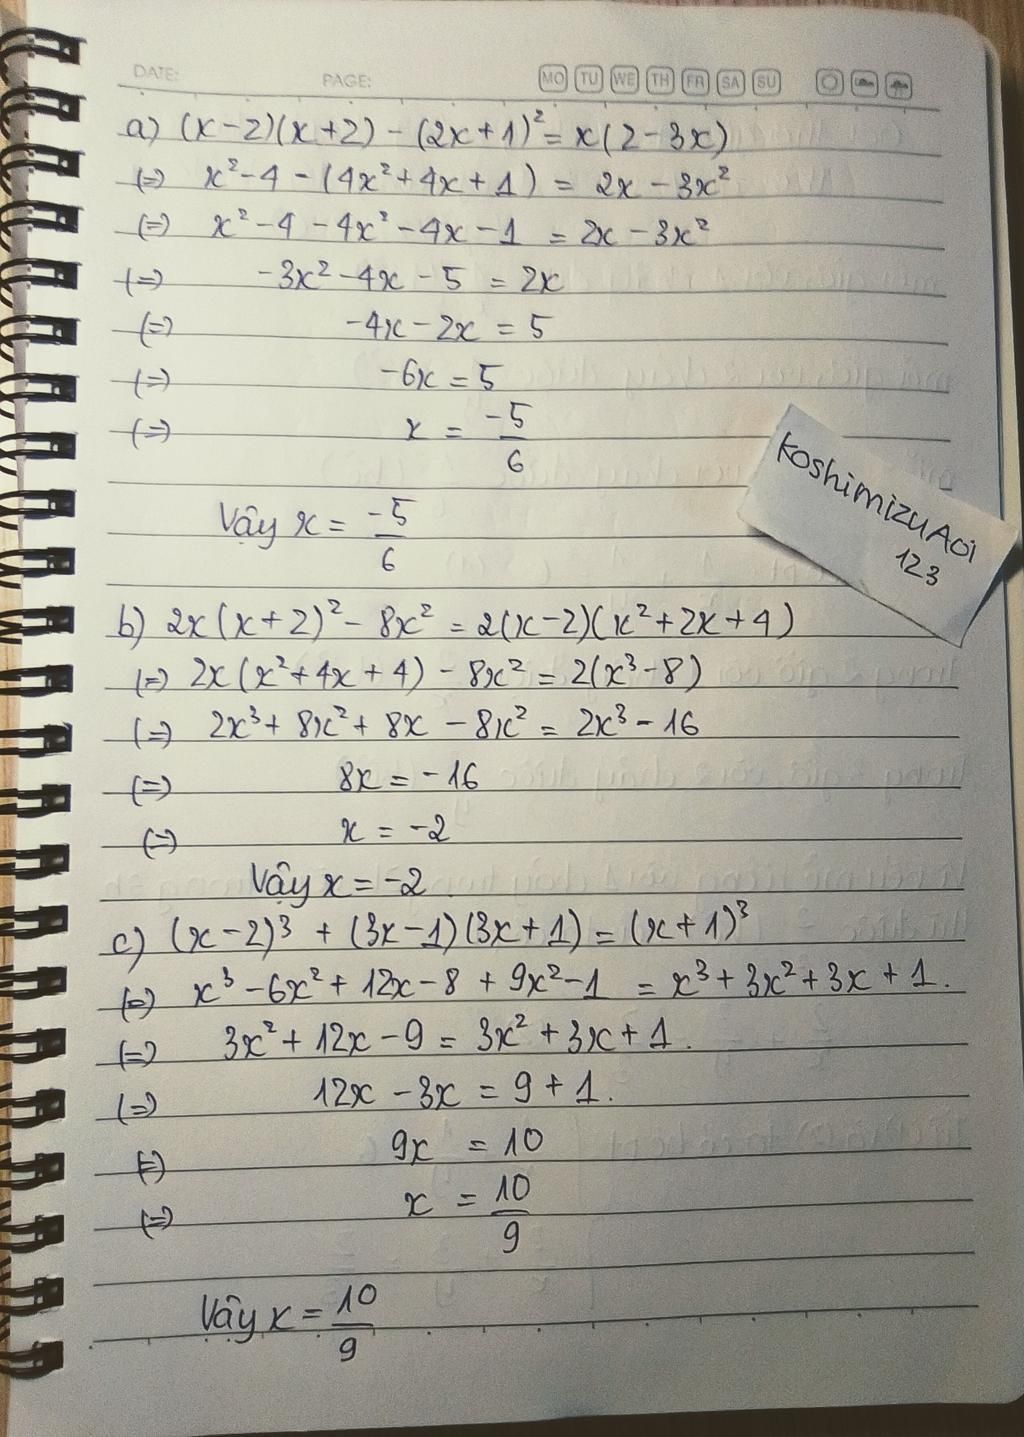 DATE: PAGE: MO TU WE TH FR SA SU
a) (x-2)(x+2) - (2x+1)² = x(2-3x)
(=) x²-4 - (4x²+4x+1) = 2x - 3x²
(=) x²-4 - 4x² - 4x - 1 = 2x - 3x²
(=) -3x² - 4x - 5 = 2x
(=) -4x - 2x = 5
(=) -6x = 5
(=) x = -5/6
Vậy x = -5/6
KoshimizuAoi
123
b) 2x(x+2)² - 8x² = 2(x-2)(x²+2x+4)
(=) 2x(x²+4x+4) - 8x² = 2(x³-8)
(=) 2x³ + 8x² + 8x - 8x² = 2x³ - 16
(=) 8x = -16
(=) x = -2
Vậy x = -2
c) (x-2)³ + (3x-1)(3x+1) = (x+1)³
(=) x³ - 6x² + 12x - 8 + 9x² - 1 = x³ + 3x² + 3x + 1.
(=) 3x² + 12x - 9 = 3x² + 3x + 1.
(=) 12x - 3x = 9 + 1.
(=) 9x = 10
(=) x = 10/9
Vậy x = 10/9